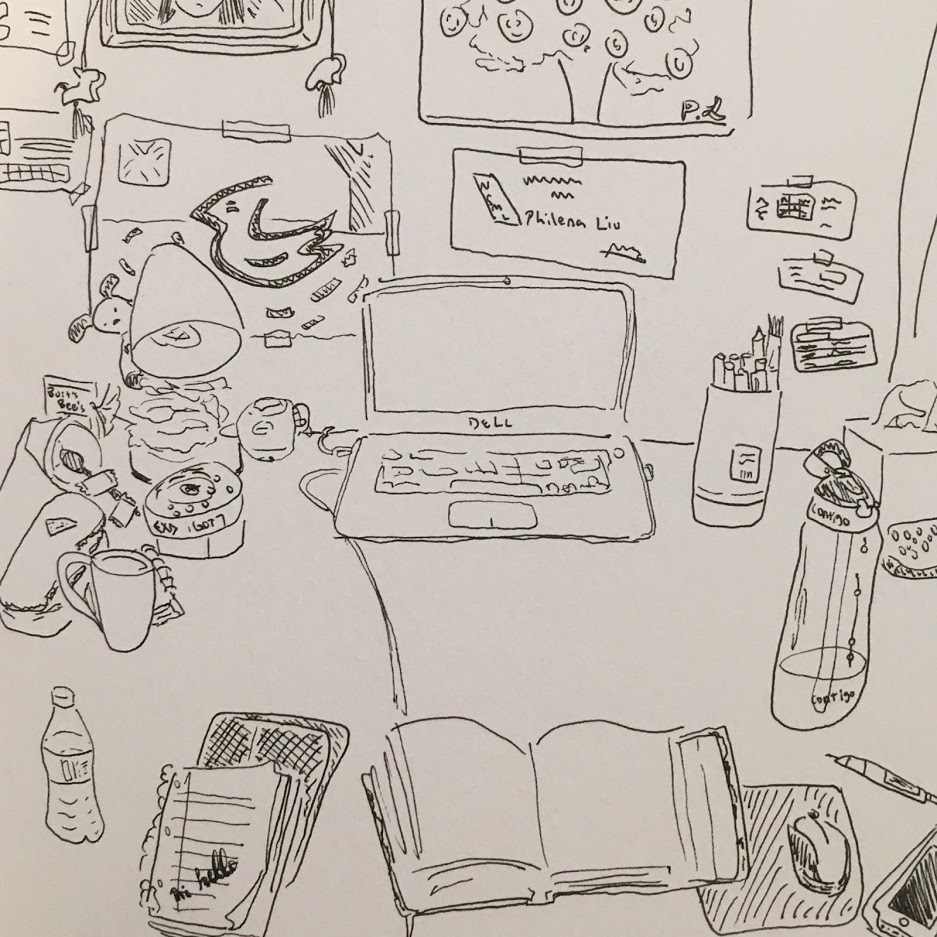 P.L
Philena Liu
Burt's
Bee's
DELL
EXP 1607
contigo
contigo
hello